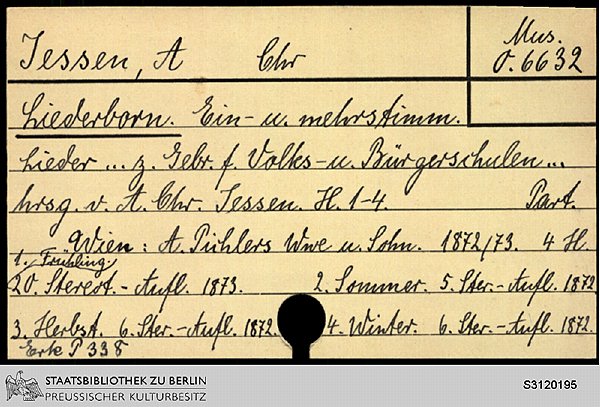 Jessen, A Chr
Mus.
O. 6632
Liederborn. Ein- u. mehrstimm.
Lieder ... z. Gebr. f. Volks- u. Bürgerschulen ...
hrsg. v. A. Chr. Jessen. H. 1-4. Part.
Wien: A. Pichlers Wwe u. Sohn. 1872/73. 4 H.
1. Frühling.
20. Stereot.-Aufl. 1873. 2. Sommer. 5. Ster.-Aufl. 1872
3. Herbst. 6. Ster.-Aufl. 1872. 4. Winter. 6. Ster.-Aufl. 1872.
Erk P 338
STAATSBIBLIOTHEK ZU BERLIN
PREUSSISCHER KULTURBESITZ
S3120195